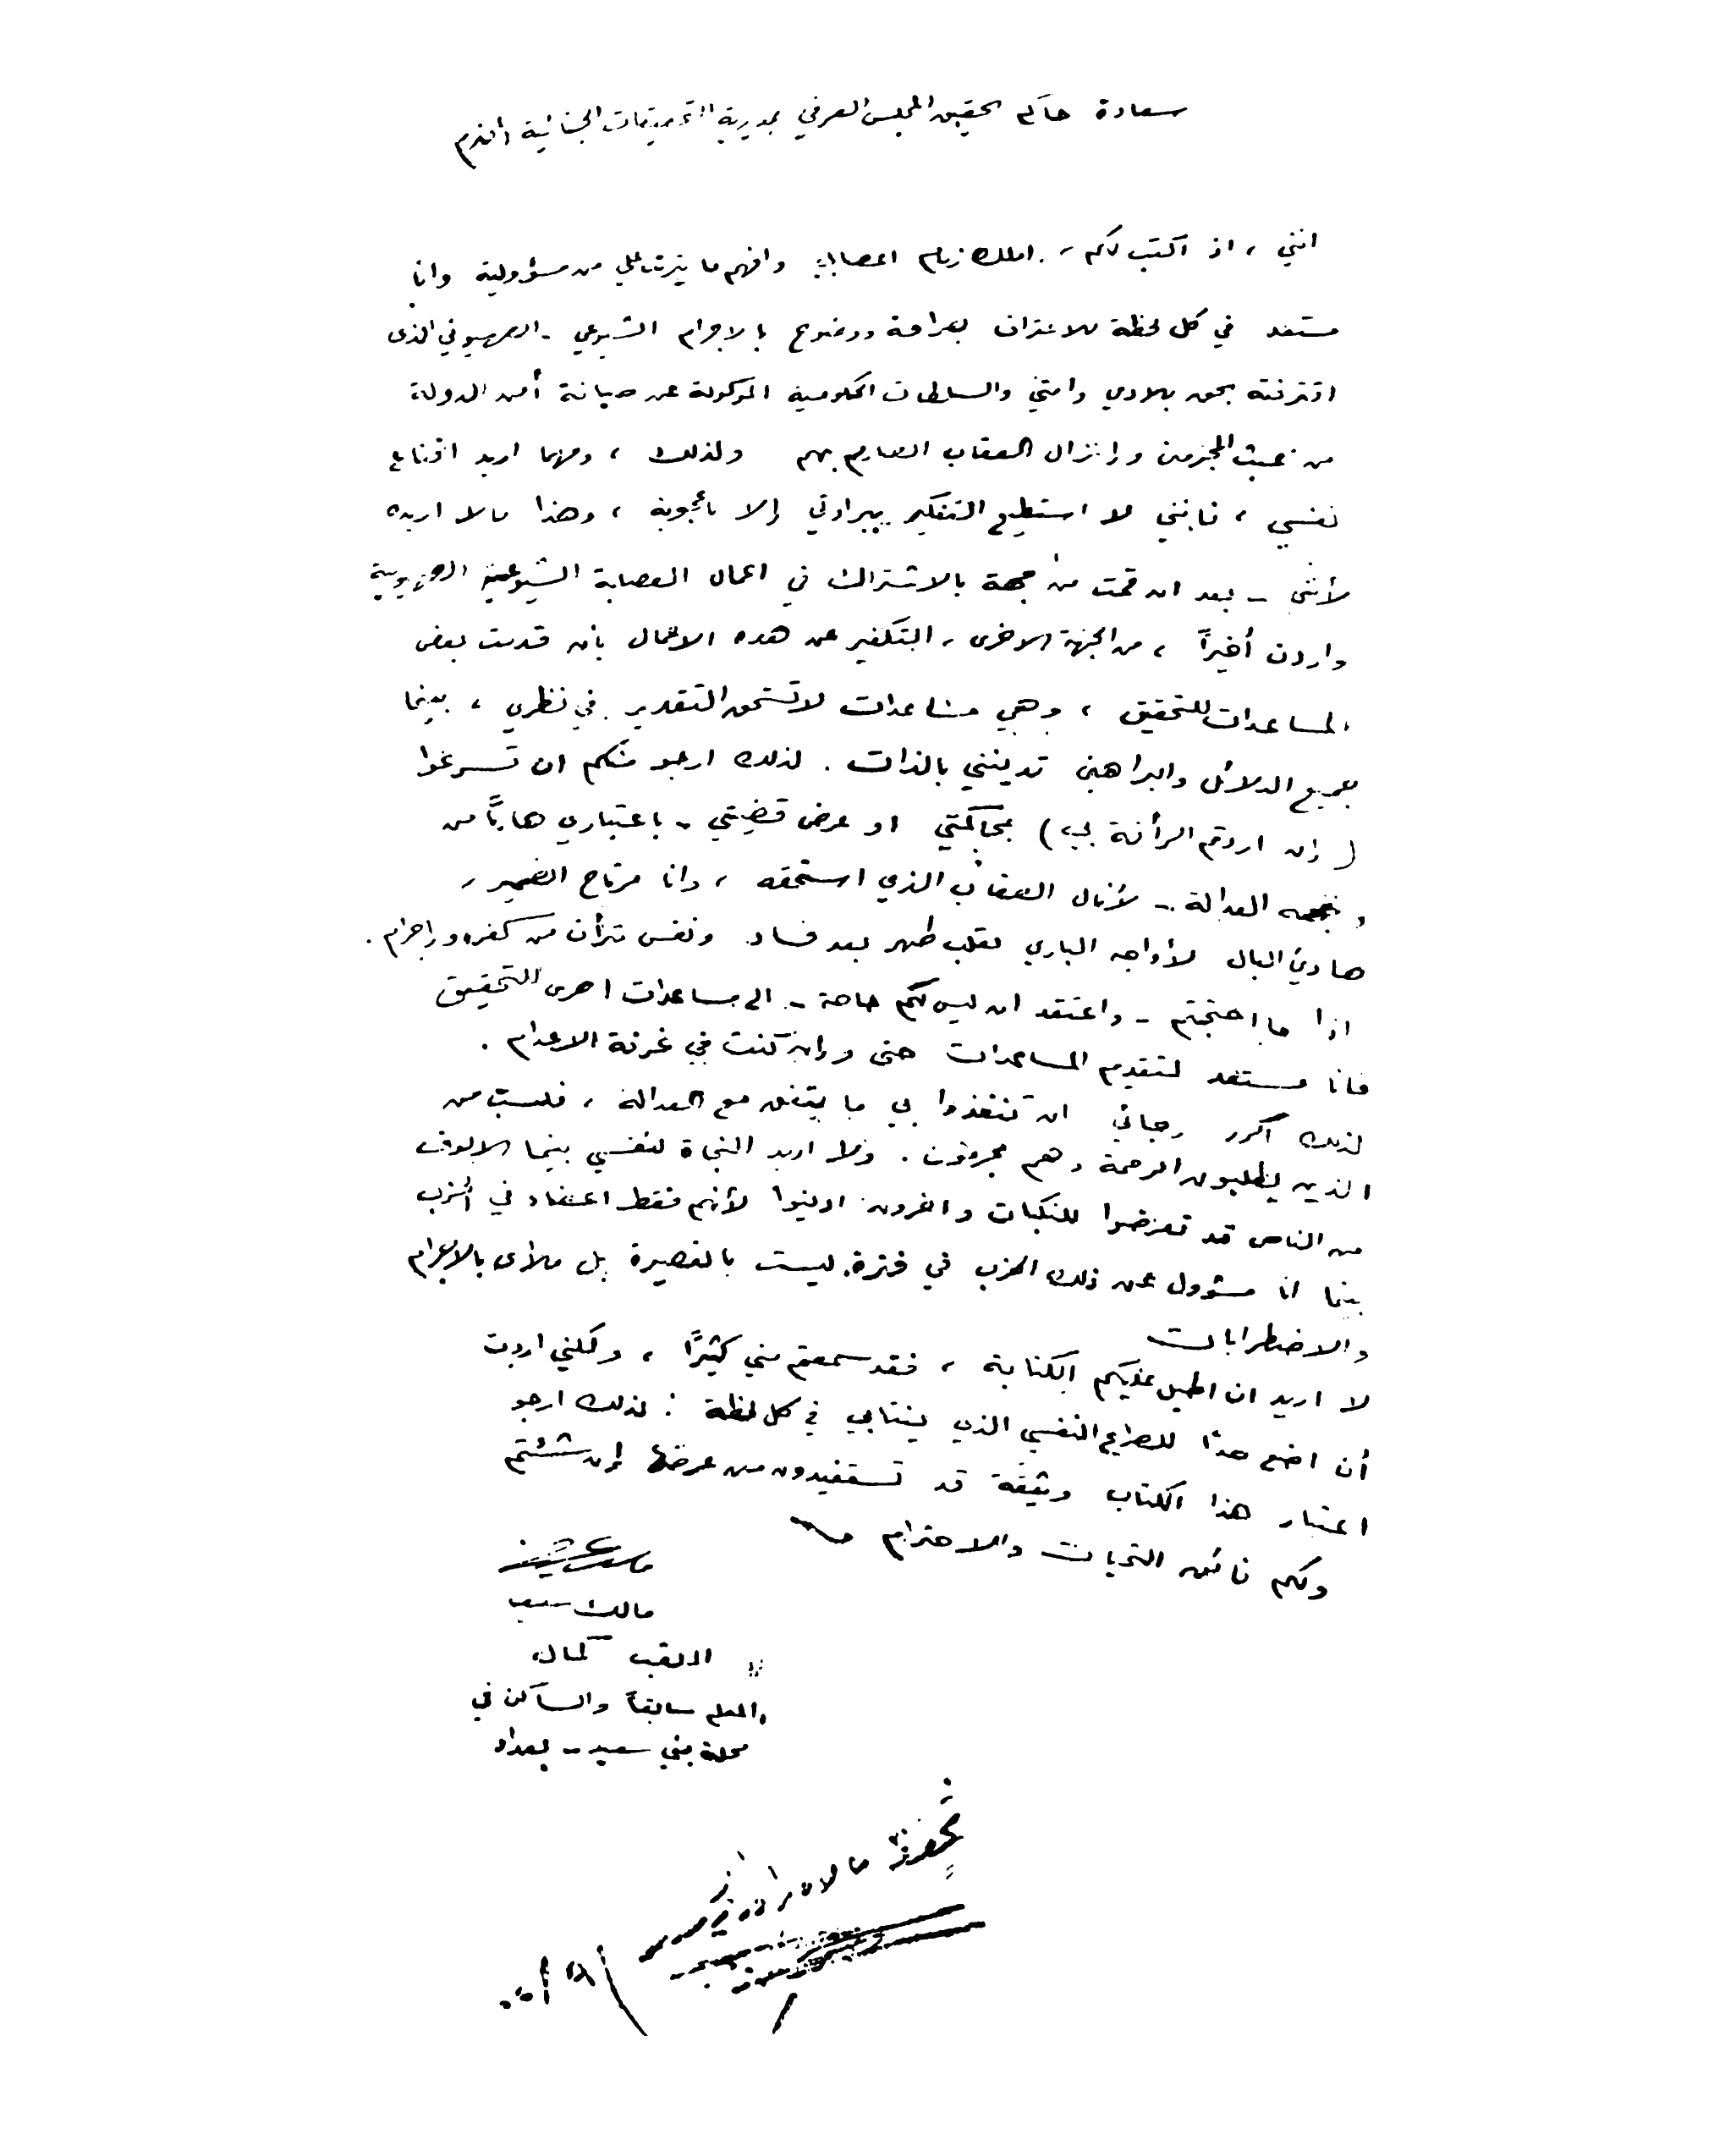 سعادة حاكم تحقيق المجلس العرفي بمديرية التحقيقات الجنائية افندم
انني ، اذ اكتب لكم ، املك زمام اعصابي وافهم ما يترتب علي من مسؤولية وانا
مستعد في كل لحظة للاعتراف بصراحة ووضوح بالاجرام الشيوعي - الصهيوني الذي
اقترفته بحق بلادي وامتي والسلطات الحكومية الموكولة عن صيانة أمن الدولة
من عبث المجرمين وإنزال العقاب الصارم بهم ولذلك ، ومهما اريد اقناع
نفسي ، فإنني لا استطيع التفكير ببراءتي إلا باعجوبة ، وهذا ما لا اريده
لأنني - بعد ان قمت من جهة بالاشتراك في اعمال العصابة الشيوعية الصهيونية
واردت أخيراً ، من الجهة الاخرى ، التكفير عن هذه الاعمال بأن قدمت بعض
المساعدات للتحقيق ، وهي مساعدات لا تستحق التقدير في نظري ، بينما
جميع الدلائل والبراهين تدينني بالذات . لذلك ارجو منكم ان تسرعوا
( إن اردتم الرأفة بي ) بمحاكمتي او عرض قضيتي - باعتباري هارباً من
وجه العدالة - لأنال العقاب الذي استحقه ، وانا مرتاح الضمير ،
هادئ البال لأواجه الباري بقلب طهر بعد فساد ونفس تبرأت من كفر وإجرام .
اذا ما احتجتم - واعتقد ان ليس لكم حاجة - الى مساعدات اخرى للتحقيق
فانا مستعد لتقديم المساعدات حتى وإن كنت في غرفة الاعدام .
لذلك اكرر رجائي ان تنفذوا بي ما يتفق مع العدالة ، فلست من
الذين يطلبون الرحمة وهم مجرمون . ولا اريد النجاة لنفسي بينما الالوف
من الناس قد تعرضوا للنكبات وآخرون ادينوا لأنهم فقط اعضاء في الحزب
بينما انا مسؤول عن ذلك الحزب في فترة ليست بالقصيرة بل ملأى بالاجرام
والاضطرابات
لا اريد ان اطيل عليكم الكتابة ، فقد سمعتم مني كثيراً ، ولكني اردت
أن اضع حداً للصراع النفسي الذي ينتابني في كل لحظة : لذلك ارجو
اعتبار هذا الكتاب وثيقة قد تستفيدون من عرضها إن شئتم
ولكم فائق التحيات والاحترام
مالك سيف
الملقب كمال
المعلم سابقاً والساكن في
محلة بني سعيد - بغداد